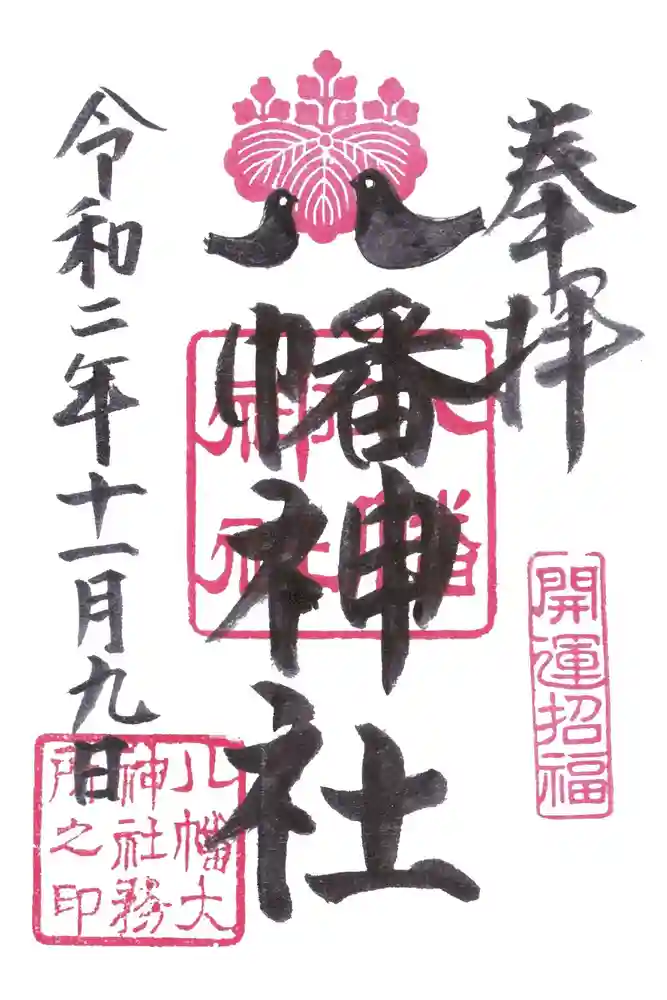 奉拝
開運招福
八幡神社
八幡
神社
令和二年十一月九日
八幡大
神社務
所之印